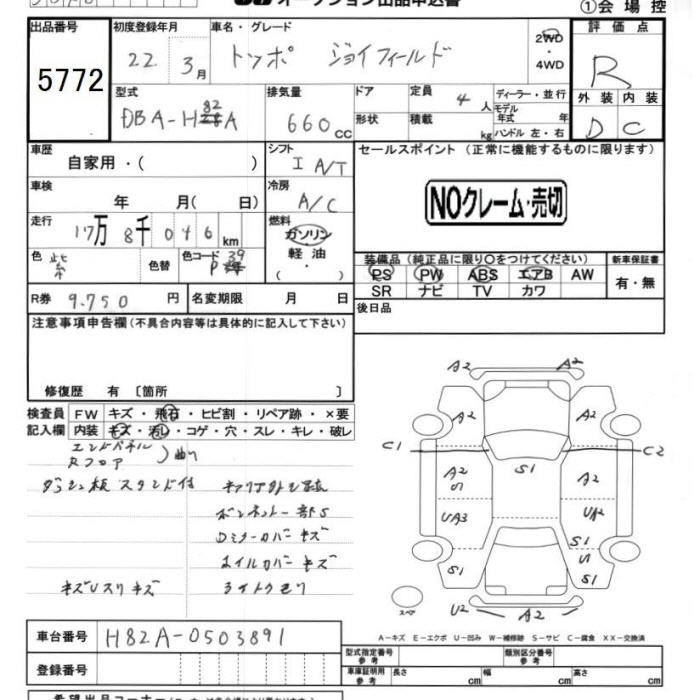 オークション出品申込書 ①会場控
出品番号 初度登録年月 車名・グレード 評価点
5772 22年 3月 トッポ ジョイフィールド 2WD・4WD R
型式 排気量 ドア 定員 4人 ディーラー・並行 外装 内装
DBA-H82A 660cc 形状 積載 kg モデル年式 年 ハンドル 左・右 D C
車歴 自家用・( ) シフト I A/T セールスポイント (正常に機能するものに限ります)
車検 年 月( 日) 冷房 A/C
NOクレーム・売切
走行 17万8千046km 燃料 ガソリン 軽油 ( ・ )
色 紫 色替 色コード P39
装備品 (純正品に限り〇をつけてください) 新車保証書
PS PW ABS エアB AW 有・無
SR ナビ TV カワ
R券 9.750円 名変期限 月 日 後日品
注意事項申告欄(不具合内容等は具体的に記入して下さい)
修復歴 有 〔箇所 〕
検査員 FW キズ・飛石・ヒビ割・リペア跡・×要
記入欄 内装 キズ・汚レ・コゲ・穴・スレ・キレ・破レ
エンドパネル
Rフロア 曲り
ダッシュ板 スタンド付
Dミラーカバー キズ
オイルカバー キズ
キズUスリキズ
ライトクモリ
A2 A2
A2 A2
C1 C2
S1
A2 S A2
UA3 UA2
S1
S
S1 S1
スペア U2 A2
A-キズ E-エクボ U-凹み W-補修跡 S-サビ C-腐食 XX-交換済
車台番号 H82A-0503891
型式指定番号 参考 類別区分番号 参考
登録番号 車庫証明用 参考 長さ 幅 高さ
cm cm cm